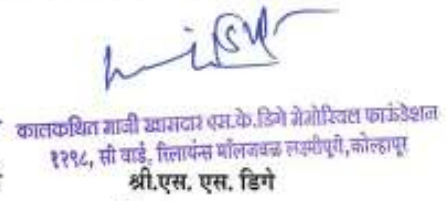 कालकथित माजी खासदार एस.के.डिगे मेमोरियल फाऊंडेशन
१२९८, सी वार्ड, रिलायन्स मॉलजवळ लक्ष्मीपूरी, कोल्हापूर
श्री.एस. एस. डिगे